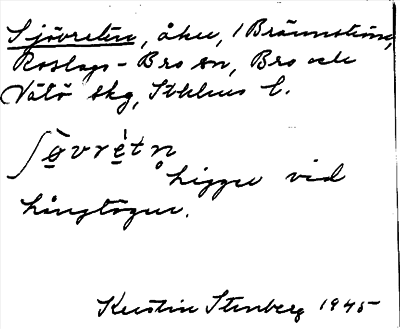 Sjövreten, åker, / Brännström,
Roslags-Bro sn, Bro och
Vätö skg, Sthlms l.
ʃö̀vrétn
ligger vid
långtogen.
Kerstin Stenberg 1945